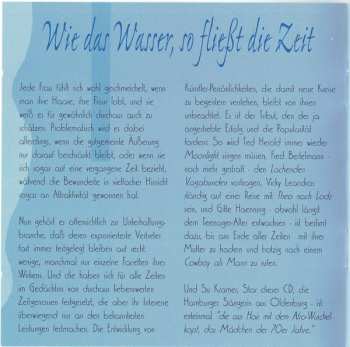 Wie das Wasser, so fließt die Zeit
Jede Frau fühlt sich wohl geschmeichelt, wenn
man ihre Haare, ihre Frisur lobt, und sie
weiß es für gewöhnlich durchaus auch zu
schätzen. Problematisch wird es dabei
allerdings, wenn die gutgemeinte Äußerung
nur darauf beschränkt bleibt, oder wenn sie
sich sogar auf eine vergangene Zeit bezieht,
während die Bewunderte in vielfacher Hinsicht
sogar an Attraktivität gewonnen hat.
Nun gehört es offensichtlich zur Unterhaltungs-
branche, daß deren exponierteste Vertreter
fast immer festgelegt bleiben auf recht
wenige, manchmal nur einzelne Facetten ihres
Wirkens. Und die haben sich für alle Zeiten
im Gedächtnis von durchaus liebenswerten
Zeitgenossen festgesetzt, die aber ihr Interesse
überwiegend nur an den bekanntesten
Leistungen festmachen. Die Entwicklung von
Künstler-Persönlichkeiten, die damit neue Kreise
zu begeistern verstehen, bleibt von ihnen
unbeachtet. Es ist der Tribut, den der ja
angestrebte Erfolg und die Popularität
fordern: So wird Ted Herold immer wieder
Moonlight singen müssen, Fred Bertelmann -
noch mehr gestraft - den Lachenden
Vagabunden vortragen, Vicky Leandros
ständig auf eine Reise mit Theo nach Lodz
sein, und Gitte Haenning - obwohl längst
dem Teenager-Alter entwachsen - ist bestimmt
dazu, bis ans Ende aller Zeiten mit ihrer
Mutter zu hadern und trotzig nach einem
Cowboy als Mann zu rufen.
Und Su Kramer, Star dieser CD, die
Hamburger Sängerin aus Oldenburg - ist
ersteinmal "die aus Hair mit dem Afro-Wuschel-
kopf, das Mädchen der 70er Jahre."